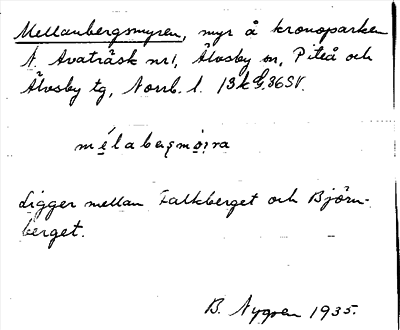 Mellanbergsmyren, myr å kronoparken
N. Avaträsk nr 1, Älvsby sn, Piteå och
Älvsby tg, Norrb. l. 13k G. 36 SV.
mélabærgmøi̯ra
Ligger mellan Falkberget och Björn-
berget.
B. Nygren 1935.